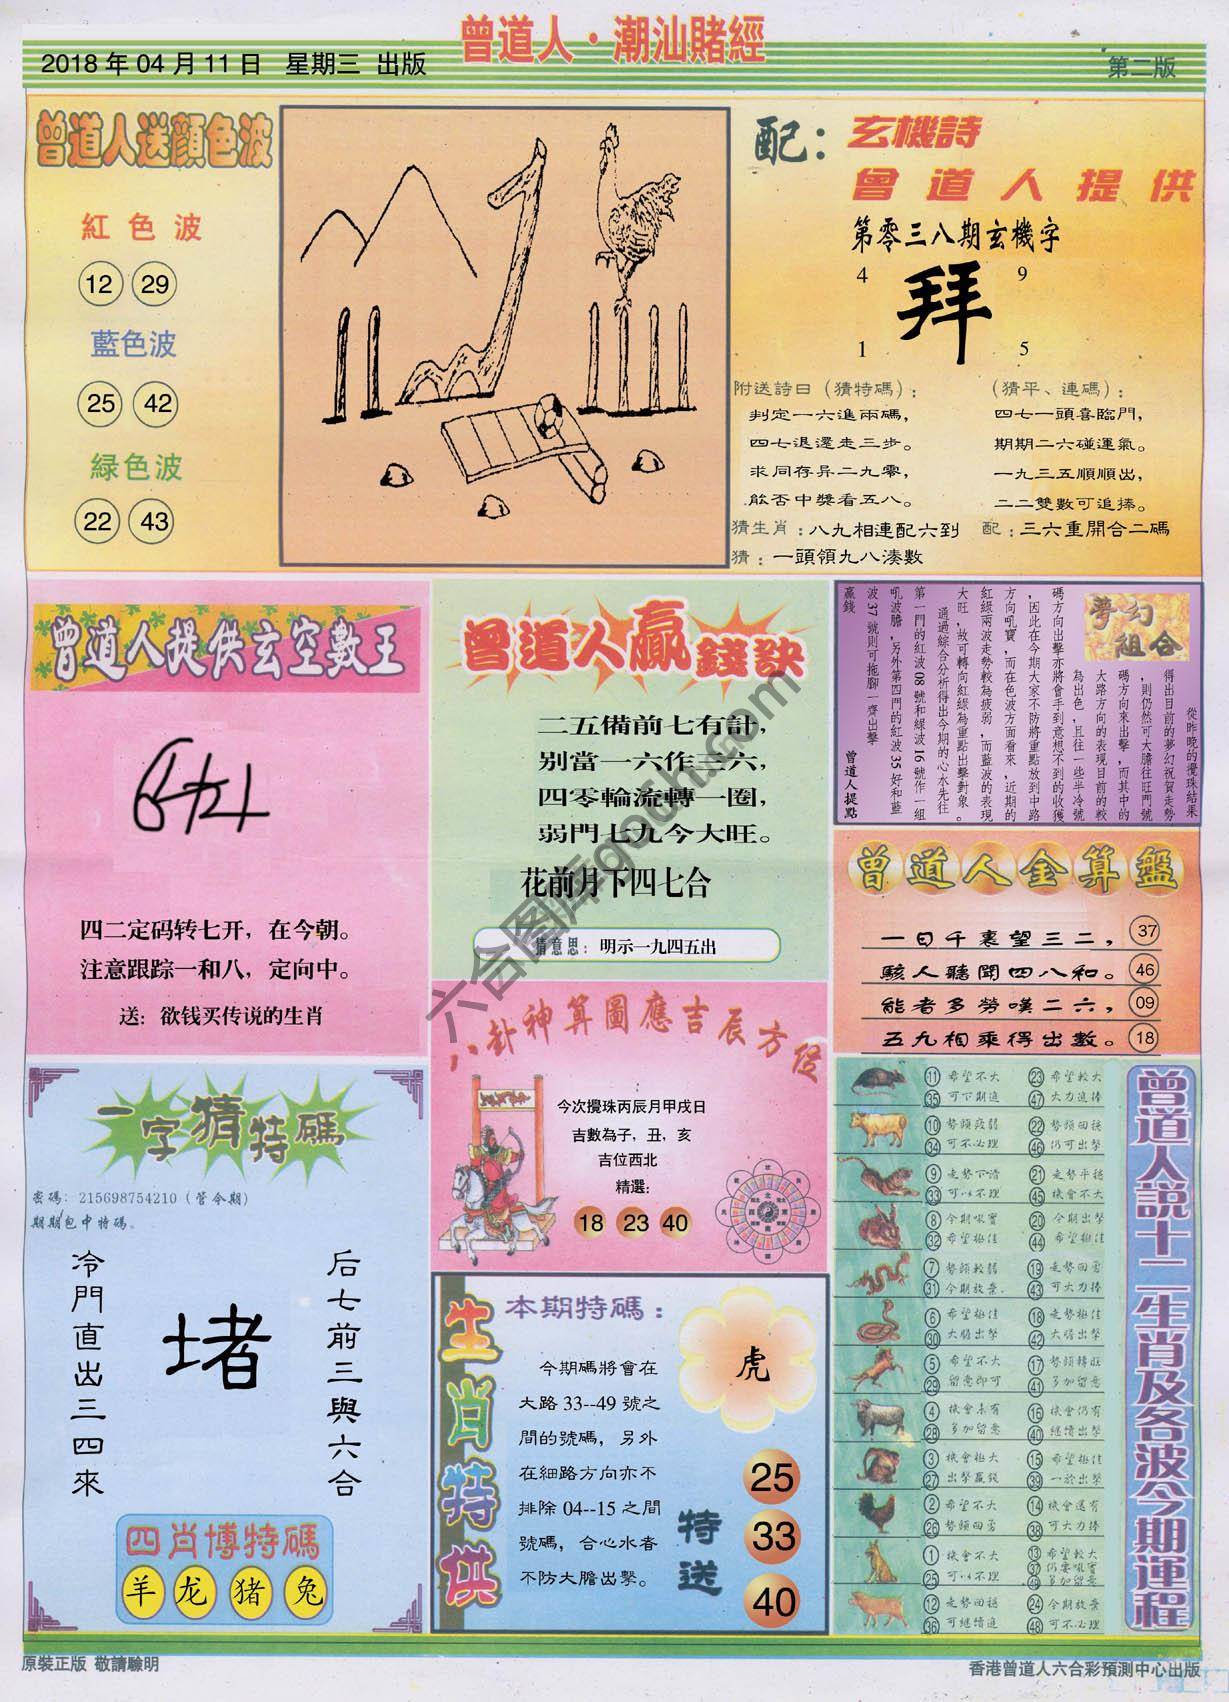 曾道人·潮汕賭經
2018年04月11日 星期三 出版
第二版
曾道人送顏色波
紅色波
12 29
藍色波
25 42
緑色波
22 43
配：玄機詩
曾道人提供
第零三八期玄機字
4 9
拜
1 5
附送詩曰（猜特碼）：
判定一六進兩碼，
四七退還走三步。
求同存异二九零，
能否中獎看五八。
（猜平、連碼）：
四七一頭喜臨門，
期期二六碰運氣。
一九三五順順出，
二二雙數可追捧。
猜生肖：八九相連配六到
配：三六重開合二碼
猜：一頭領九八湊數
曾道人提供玄空數王
四二定码转七开，在今朝。
注意跟踪一和八，定向中。
送：欲钱买传说的生肖
曾道人贏錢訣
二五備前七有計，
别當一六作三六，
四零輪流轉一圈，
弱門七九今大旺。
花前月下四七合
猜意思：明示一九四五出
夢幻組合
從昨晚的攪珠結果
得出目前的夢幻祝賀走勢
，則仍然可大膽往旺門號
碼方向來出擊，而其中的
大路方向的表現目前的較
為出色，且往一些半冷號
碼方向出擊亦將會手到意想不到的收獲
，因此在今期大家不防將重點放到中路
方向吼寶，而在色波方面看來，近期的
紅緑兩波走勢較為疲弱，而藍波的表現
大旺，故可轉向紅緑為重點出擊對象。
通過綜合分析得出今期的心水先往
第一門的紅波08號和緑波16號作一組
吼波膽，另外第四門的紅波35好和藍
波37號則可拖腳一齊出擊
贏錢 曾道人提點
曾道人金算盤
一日千裏望三二， 37
駭人聽聞四八和。 46
能者多勞嘆二六， 09
五九相乘得出數。 18
八卦神算圖應吉辰方位
今次攪珠丙辰月甲戌日
吉數為子，丑，亥
吉位西北
精選：
18 23 40
一字猜特碼
密碼：215698754210（管令期）
期期包中特碼。
冷門直出三四來
堵
后七前三與六合
四肖博特碼
羊 龙 猪 兔
生肖特供
本期特碼：
虎
今期碼將會在
大路33--49號之
間的號碼，另外
在細路方向亦不
排除04--15之間
號碼，合心水者
不防大膽出擊。
特送
25
33
40
曾道人説十二生肖及各波今期運程
11 希望不大 23 希望較大
35 可下期追 47 大力追捧
10 勢頭疲弱 22 勢頭回穩
34 可不必理 46 仍可出擊
9 走勢下滑 21 走勢平穩
33 可以不理 45 機會不大
8 今期吼寶 20 今期出擊
32 希望極佳 44 希望極佳
7 勢頭較弱 19 走勢回勇
31 今期放棄 43 可大力捧
6 希望極佳 18 走勢極佳
30 大膽出擊 42 大膽出擊
5 希望不大 17 勢頭轉旺
29 留意即可 41 多加留意
4 機會未有 16 機會仍有
28 多加留意 40 繼續出擊
3 機會極大 15 希望極佳
27 出擊贏錢 39 一於出擊
2 希望不大 14 機會還有
26 勢頭回勇 38 可大力捧
1 機會不大 13 希望較大
25 可以不理 37 仍要吼實
49 多加留意
12 走勢回穩 24 今期放棄
36 可繼續追 48 可不必理
原裝正版 敬請驗明
香港曾道人六合彩預測中心出版
六合图库gouch.com